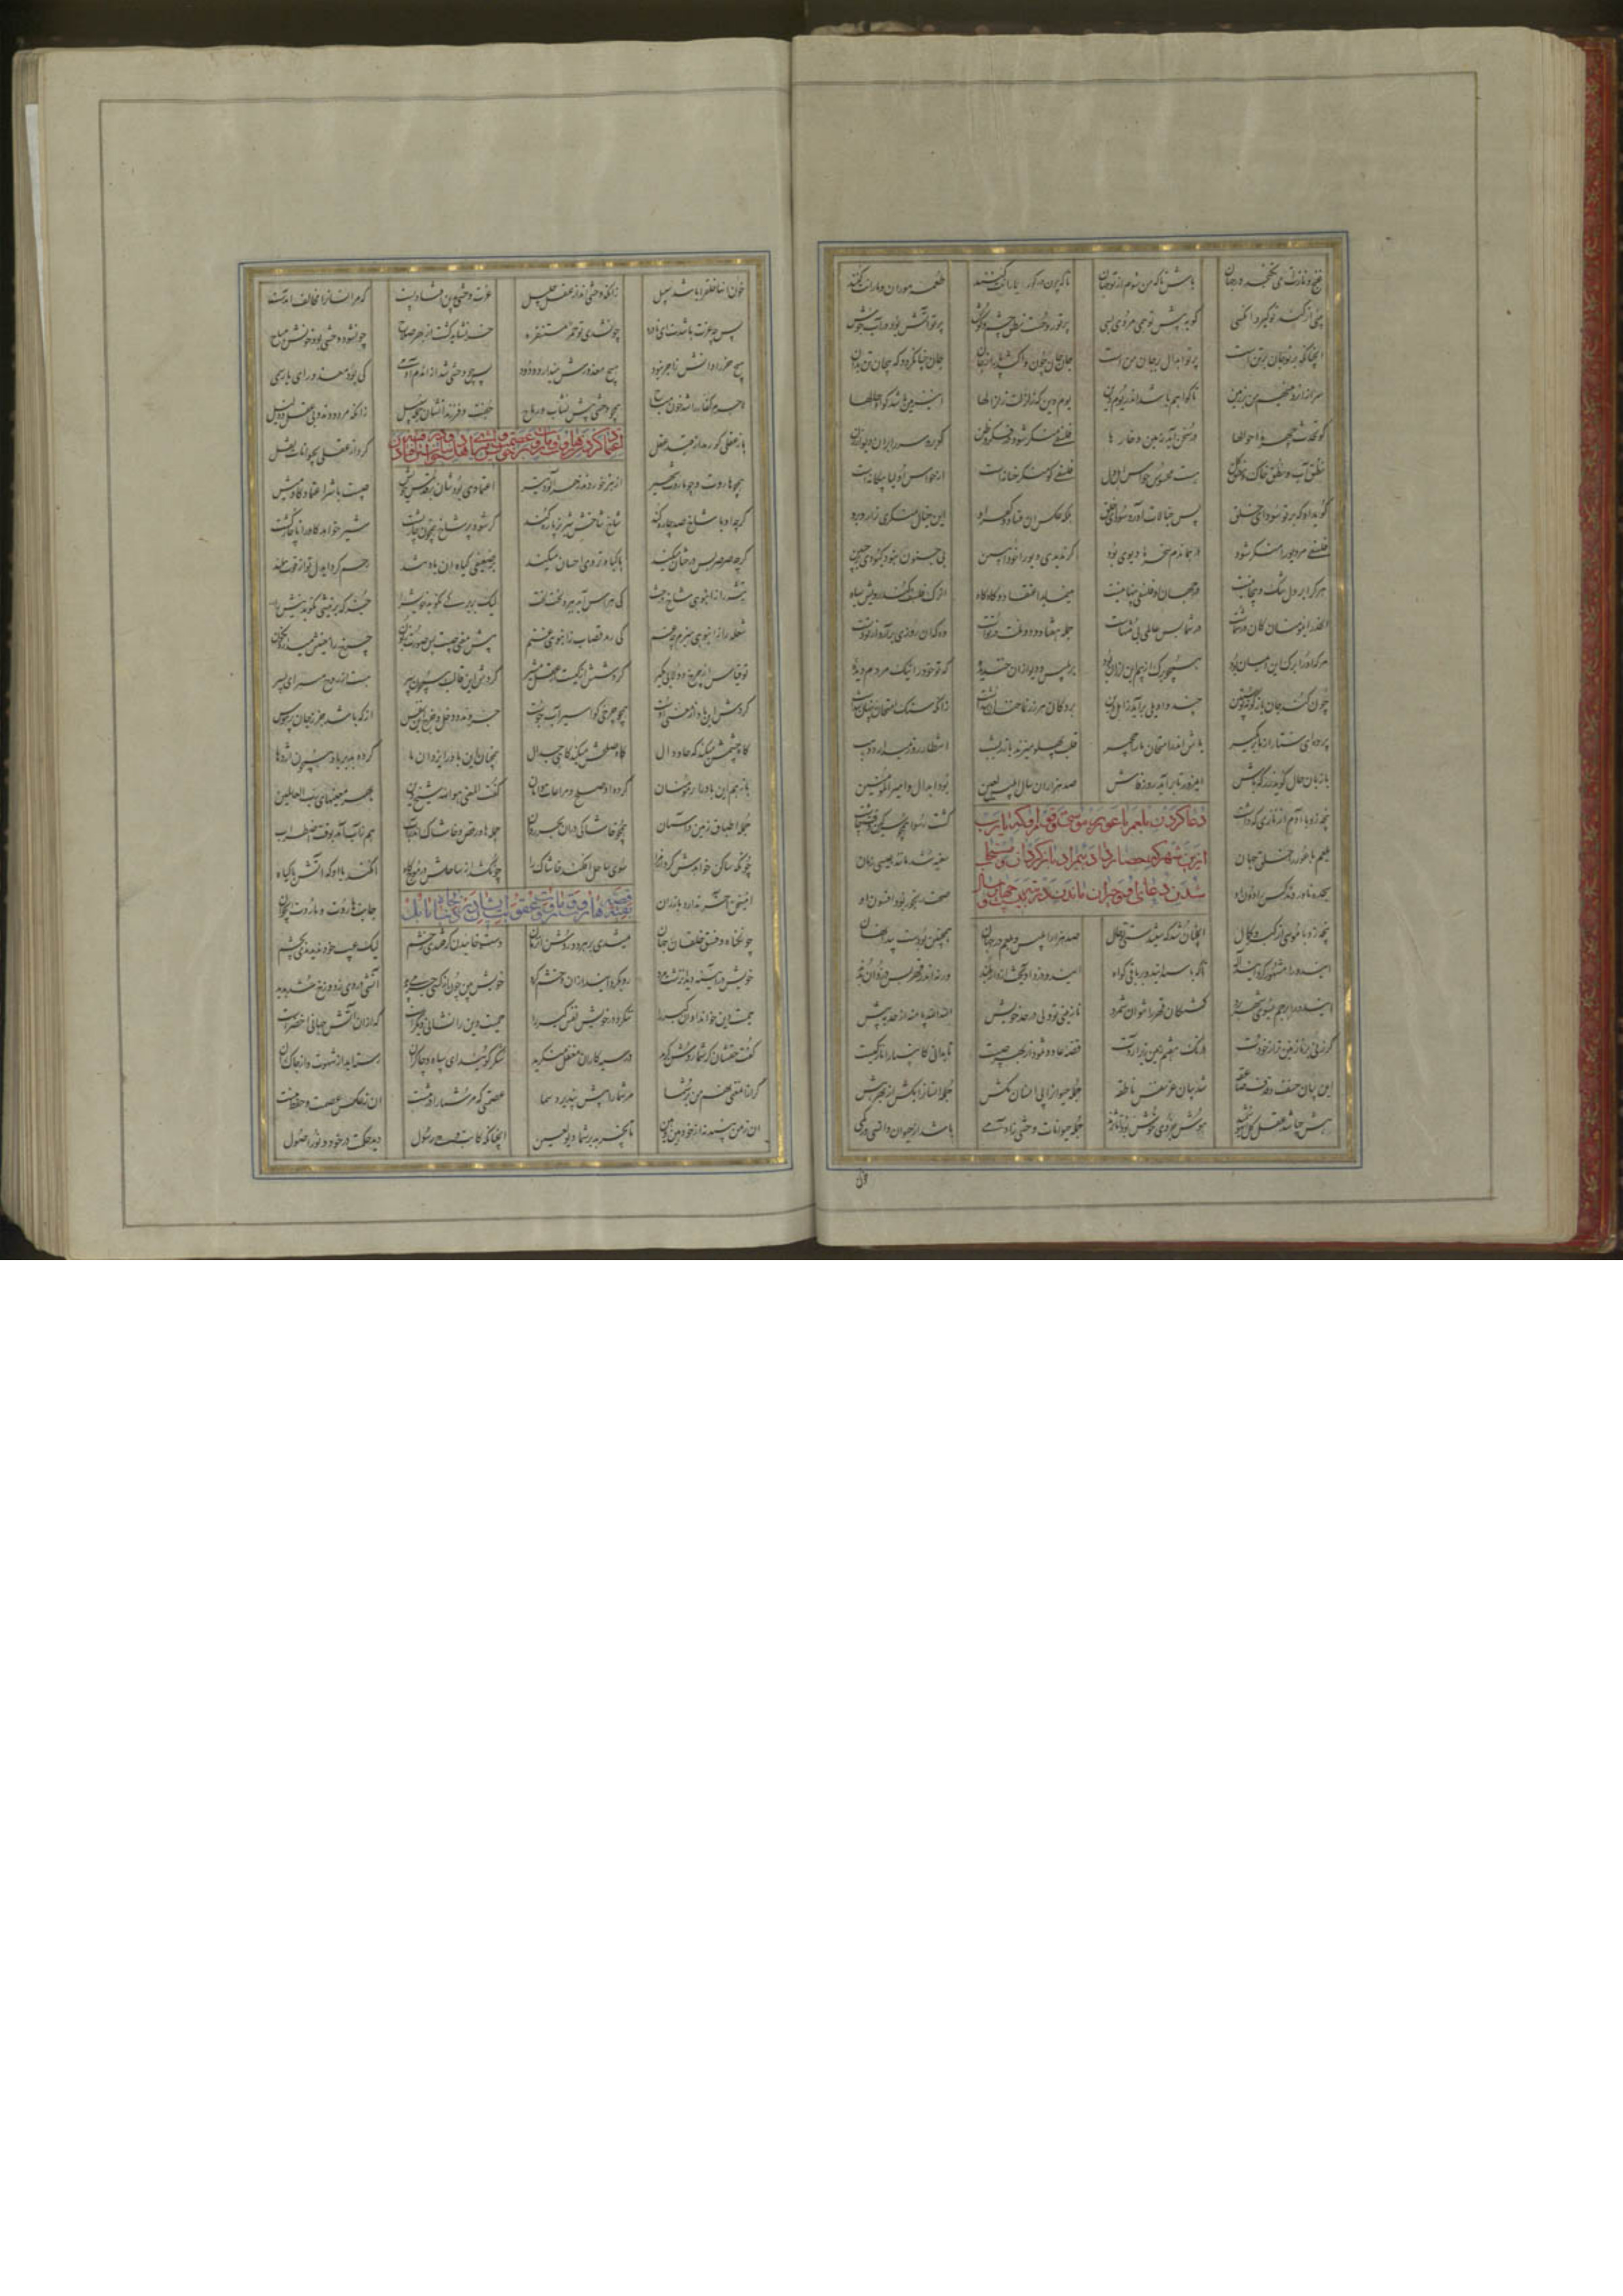 غنج و نازت می نگنجد در جهان باش تا که من شوم از تو جهان تا که چون در گور یارانت کنند طعمه موران و مارانت کنند
بینی از گند تو گیرد آن کسی کو به پیش تو همی مردی بسی پرتو روحست نطق و چشم و گوش پرتو آتش بود در آب جوش
آنچنانکه پرتو جان بر تن است پرتو ابدال بر جان من است جان جان چون واکشد پا را ز جان جان چنان گردد که بیجان تن بدان
سر از آن رو می نهم من بر زمین تا گواهم باشد اندر یوم دین یوم دین که زلزلت زلزالها این زمین باشد گواه حالها
کو تحدث جهرة اخبارها در سخن آید زمین و خارها فلسفی منکر شود در فکر و ظن گو برو سر را بر آن دیوار زن
نطق آب و نطق خاک و نطق گل هست محسوس حواس اهل دل فلسفی کو منکر حنانه است از حواس اولیا بیگانه است
گوید او که پرتو سودای خلق پس خیالات آورد در رای خلق بلکه عکس آن فساد و کفر او این خیال منکری را زد برو
فلسفی مر دیو را منکر شود در همان دم سخره دیوی بود گر ندیدی دیو را خود را ببین بی جنون نبود کبودی در جبین
هر که را در دل شک و پیچانیست در جهان او فلسفی پنهانیست مینماید اعتقاد و گاه گاه آن رگ فلسف کند رویش سیاه
الحذر ای مومنان کان در شماست در شما بس عالم بی منتهاست جمله هفتاد و دو ملت در توست وه که آن روزی برآرد از تو دست
هر که او را برگ این ایمان بود همچو برگ از بیم این لرزان بود بر بلیس و دیو از آن خندیده که تو خود را نیک مردم دیده
چون کند جان بازگونه پوستین چند واویلی برآید ز اهل دین بر دکان هر زرنما خندان شدست زانکه سنگ امتحان پنهان شدست
پرده ای ستار از ما برمگیر باش اندر امتحان ما را مجیر قلب پهلو میزند با زر بشب انتظار روز میدارد ذهب
با زبان حال گوید زر که باش ای مزور تا برآید روز فاش صد هزاران سال ابلیس لعین بود ابدال و امیر المومنین
پنجه زد با آدم از نازی که داشت گشت رسوا همچو سرگین وقت چاشت
دعا کردن بلعم باعور که موسی و قومش را از این شهر که حصار داده بیمراد بازگردان و مستجاب شدن دعای او
بلعم باعور را خلق جهان سغبه شد مانند عیسی زمان
سجده ناوردند کس را دون او صحت رنجور بود افسون او
پنجه زد با موسی از کبر و کمال آنچنان شد که شنیدستی تو حال صد هزار ابلیس و بلعم در جهان همچنین بودست پیدا و نهان
این دو را مشهور گردانید اله تا که باشند این دو بر باقی گواه این دو دزد آویخت از دار بلند ورنه اندر قهر بس دزدان بدند
این دو را پرچم بسوی شهر برد کشتگان قهر را نتوان شمرد نازنینی تو ولی در حد خویش الله الله پا منه از حد بیش
گر زنی بر نازنین تر از خودت در تگ هفتم زمین زیر آردت قصه عاد و ثمود از بهر چیست تا بدانی کانبیا را نازکیست
این نشان خسف و قذف و صاعقه شد بیان عز نفس ناطقه جمله حیوان را پی انسان بکش جمله انسان را بکش از بهر هش
هش چه باشد عقل کل هوشمند هوش جزوی هش بود اما نژند جمله حیوانات وحشی ز آدمی باشد از حیوان انسی در کمی
خون
خون آنها خلق را باشد سبیل زانکه وحشی اند از عقل جلیل عزت وحشی بدین افتاد پست که مر انسان را مخالف آمدست
پس چه عزت باشدت ای نادره چون شدی تو حمر مستنفره خر نشاید کشت از بهر صلاح چون شود وحشی بود خونش مباح
گرچه خر را دانش زاجر نبود هیچ معذورش نمیدارد ودود پس چو وحشی شد از آن دم آدمی کی بود معذور ای یار سمی
لاجرم کفار را شد خون مباح همچو وحشی پیش نشاب و رماح جفت و فرزندانشان جمله سبیل زانکه بی عقلند و مردود و ذلیل
باز عقلی کو رمد از عقل عقل کرد از عقلی بحیوانات نقل
اعتماد کردن هاروت و ماروت بر عصمت خویش
همچو هاروت و چو ماروت شهیر از بطر خوردند زهرآلود تیر اعتمادی بودشان بر قدس خویش چیست بر شیر اعتماد گاومیش
گرچه او با شاخ صد چاره کند شاخ شاخش شیر نر پاره کند گر شود پر شاخ همچون خارپشت شیر خواهد گاو را ناچار کشت
گرچه صرصر بس درختان میکند با گیاه تر وی احسان میکند بر ضعیفی گیاه آن باد تند رحم کرد ای دل تو از قوت ملند
تیشه را ز انبوهی شاخ درخت کی هراس آید ببرد لخت لخت لیک بر برگی نکوبد خویش را جز که بر نیشی نکوبد نیش را
شعله را ز انبوهی هیزم چه غم کی رمد قصاب ز انبوهی غنم پیش معنی چیست صورت بس زبون چرخ را معنیش میدارد نگون
تو قیاس از چرخ دولابی بگیر گردشش از کیست از عقل منیر گردش این قالب همچون سپر هست از روح مستر ای پسر
گردش این باد از معنی اوست همچو چرخی کو اسیر آب جوست جزر و مد و دخل و خرج این نفس از که باشد جز ز جان پرهوس
گاه جیمش میکند گه حا و دال گاه صلحش میکند گاهی جدال همچنان این باد را یزدان ما کرده بد بر عاد همچون اژدها
باز هم آن باد را بر مومنان کرده بد صلح و مراعات و امان گفت المعنی هو الله شیخ دین بحر معنیهای رب العالمین
جمله اطباق زمین و آسمان همچو خاشاکی در آن بحر روان حمله ها و رقص خاشاک اندر آب هم ز آب آمد بوقت اضطراب
چونکه ساکن خواهدش کرد از مرا سوی ساحل افکند خاشاک را چون کشد از ساحلش در موجگاه آن کند با او که آتش با گیاه
این سخن آخر ندارد باز ران جانب هاروت و ماروت ای جوان
بقیه قصه هاروت و ماروت و عقوبت ایشان در چاه بابل
چون گناه و فسق خلقان جهان میشدی بر هر دو روشن آن زمان دست خاییدن گرفتندی ز خشم لیک عیب خود ندیدندی بچشم
خویش در آیینه دید آن زشت مرد رو بگردانید از آن و خشم کرد خویش بین چون از کسی جرمی بدید آتشی در وی ز دوزخ شد پدید
حمیت دین خواند او آن کبر را ننگرد در خویش نفس گبر را حمیت دین را نشانی دیگرست که از آن آتش جهانی اخضرست
گفت حقشان گر شما روشنگرید در سیه کاران مغفل منگرید شکر گویید ای سپاه و چاکران رسته اید از شهوت و از چاک ران
گر از آن معنی نهم من بر شما مر شما را بیش نپذیرد سما عصمتی که مر شما را در تنست آن ز عکس عصمت و حفظ منست
آن ز من بینید نز خود هین و هین تا نچربد بر شما دیو لعین آنچنانکه کاتب وحی رسول دید حکمت در خود و نور اصول